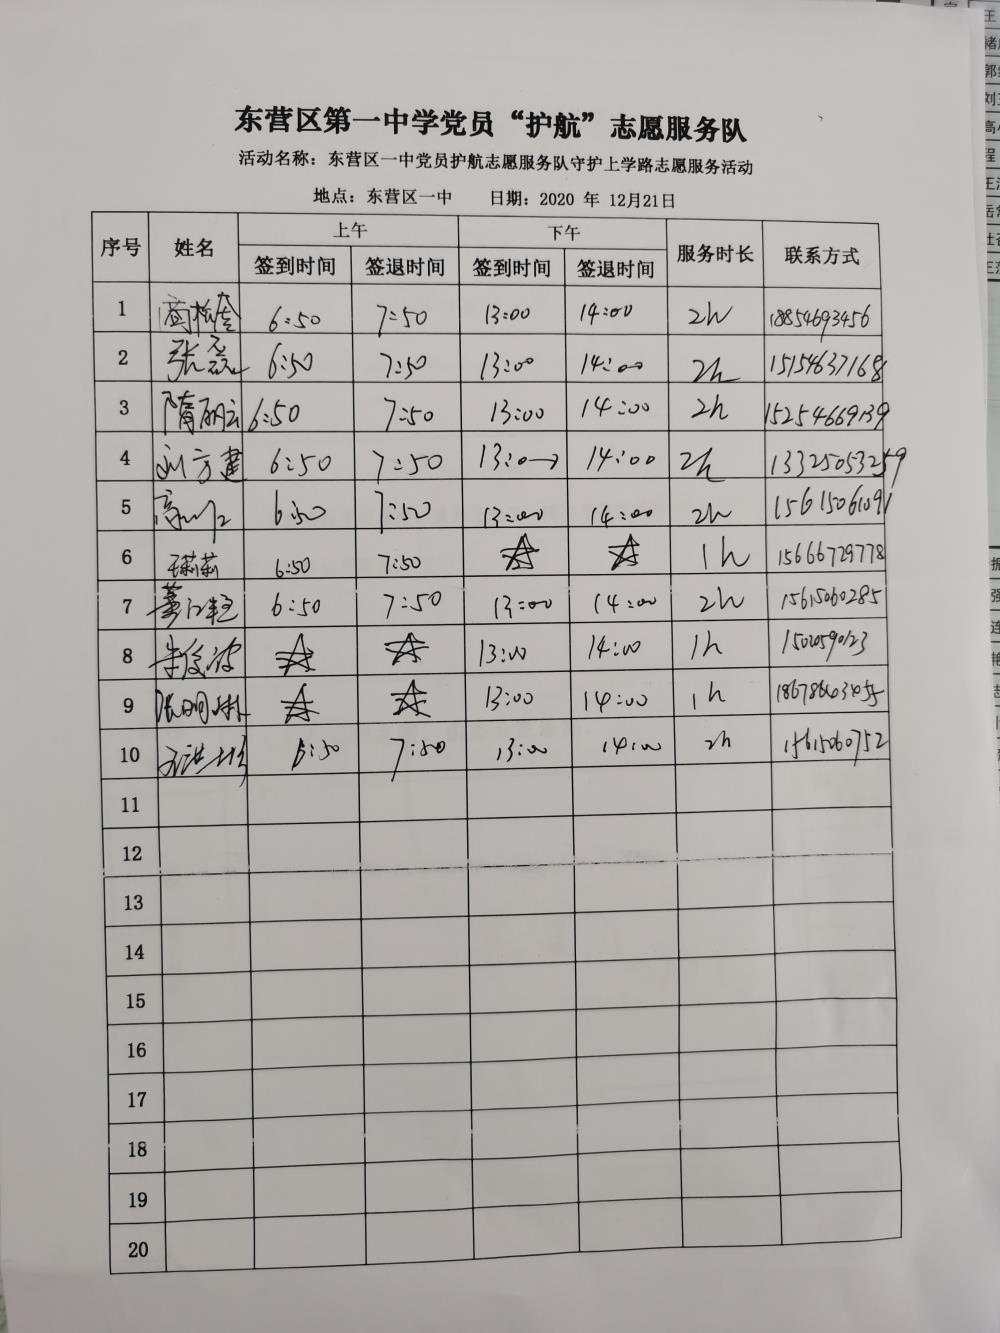 东营区第一中学党员“护航”志愿服务队
活动名称：东营区一中党员护航志愿服务队守护上学路志愿服务活动
地点：东营区一中 日期：2020 年 12月21日
序号 姓名 上午 下午 服务时长 联系方式
签到时间 签退时间 签到时间 签退时间
1 6:50 7:50 13:00 14:00 2h 18854693456
2 张磊 6:50 7:50 13:00 14:00 2h 15154637168
3 隋丽云 6:50 7:50 13:00 14:00 2h 15254669139
4 刘方建 6:50 7:50 13:00 14:00 2h 13325053259
5 6:50 7:50 13:00 14:00 2h 15615061091
6 王莉莉 6:50 7:50 ☆ ☆ 1h 15666729778
7 6:50 7:50 13:00 14:00 2h 15615060285
8 ☆ ☆ 13:00 14:00 1h
9 ☆ ☆ 13:00 14:00 1h
10 6:50 7:50 13:00 14:00 2h 15615060752
11
12
13
14
15
16
17
18
19
20